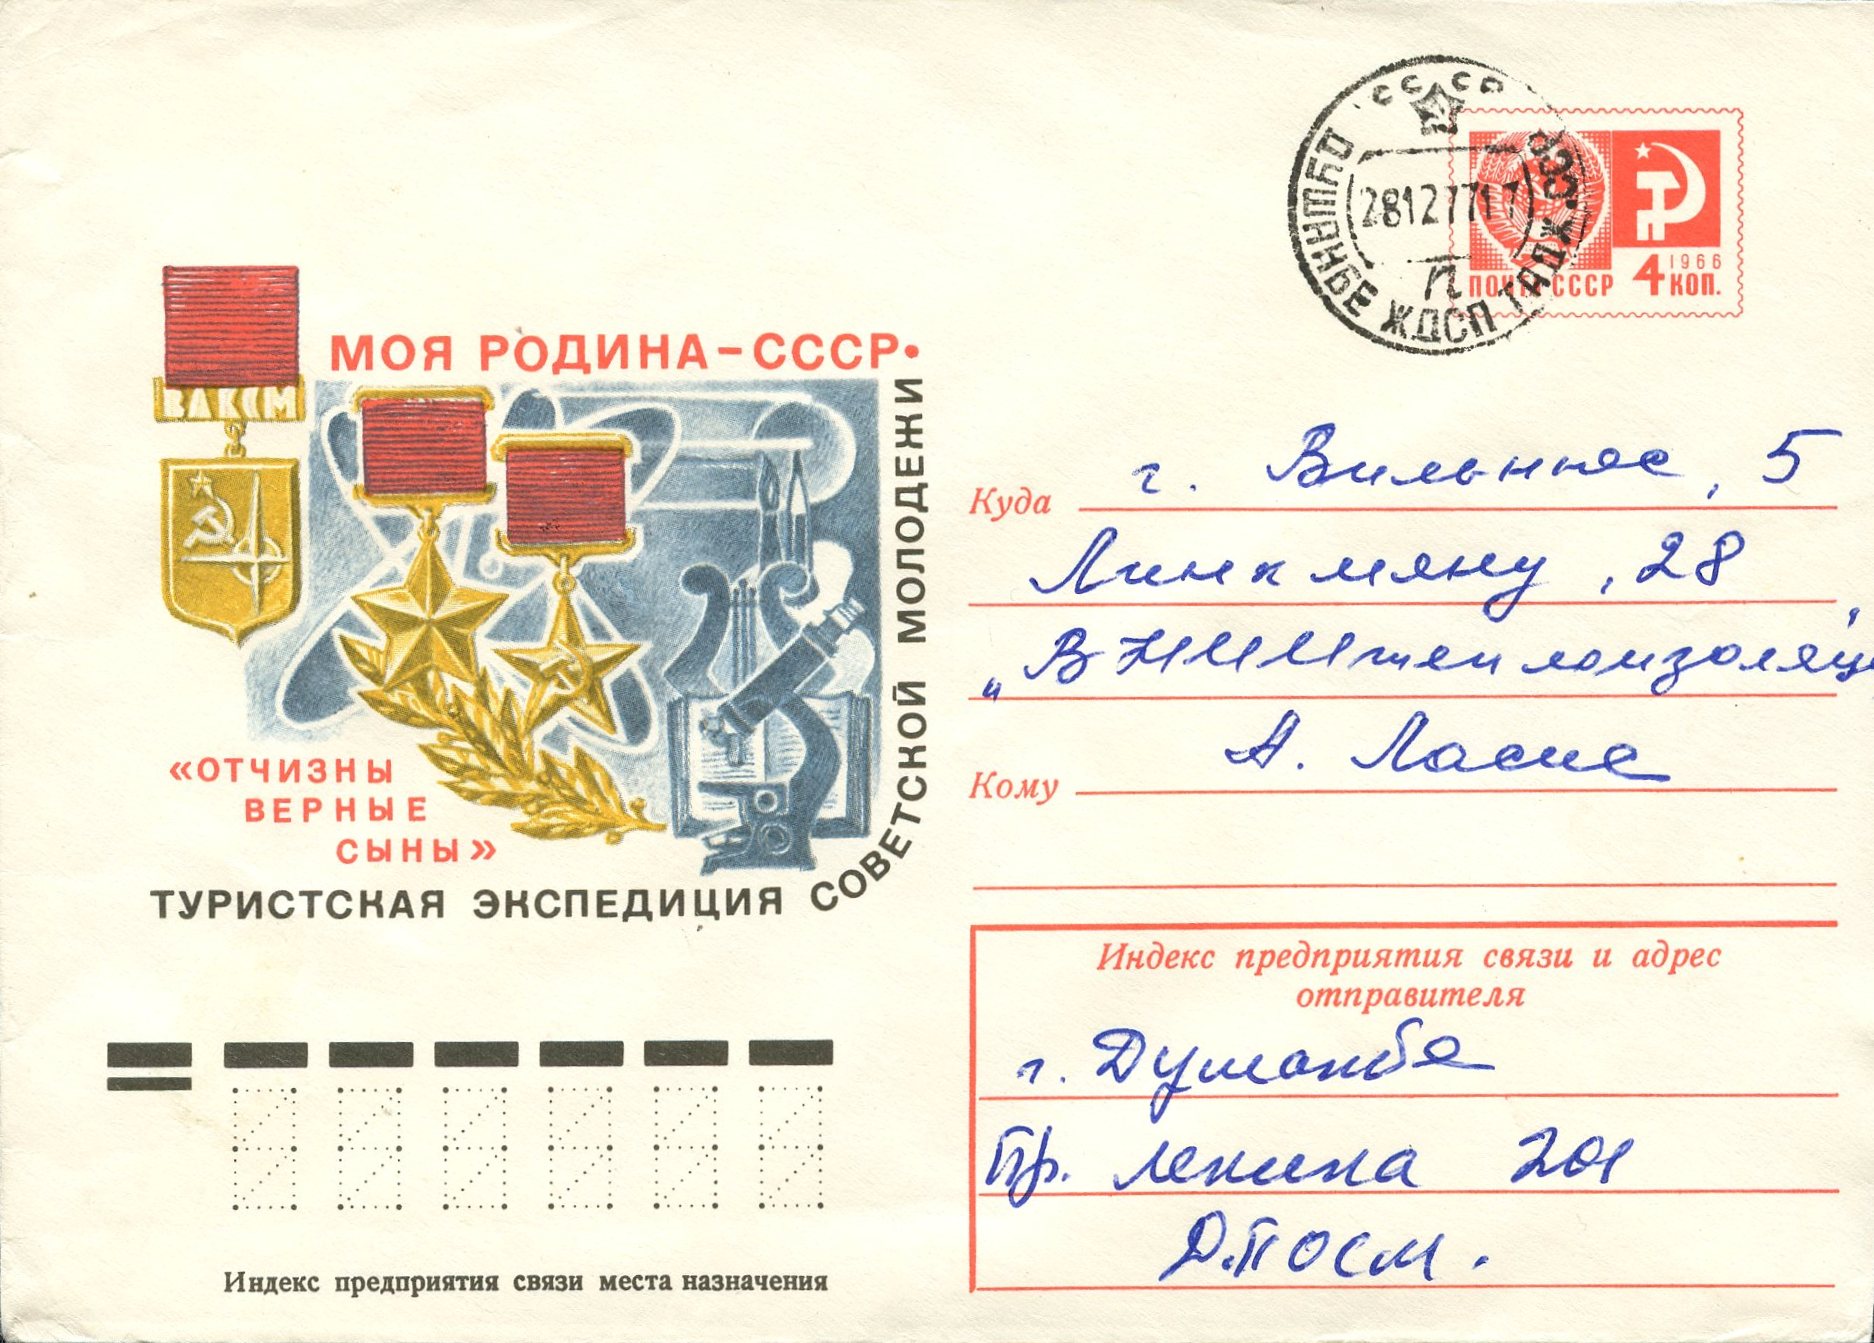 СССР
ДУШАНБЕ ЖДСП ТАДЖ.ССР
28127717
П
ПОЧТА СССР 4 КОП.
1966
ВЛКСМ
МОЯ РОДИНА–СССР•
«ОТЧИЗНЫ
ВЕРНЫЕ
СЫНЫ»
ТУРИСТСКАЯ ЭКСПЕДИЦИЯ СОВЕТСКОЙ МОЛОДЕЖИ
Куда г. Вильнюс, 5
Линкмяну, 28
„ВНИИтеплоизоляц"
Кому А. Ласис
Индекс предприятия связи и адрес
отправителя
г. Душанбе
Пр. Ленина 201
Индекс предприятия связи места назначения